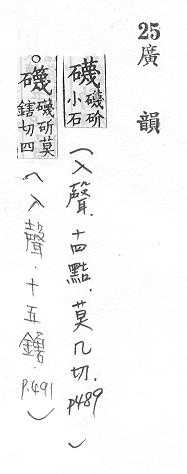 25
廣韻
礣 礣砎小石
（入聲．十四黠．莫八切．p489）
○礣 礣砎莫鎋切四
（入聲．十五鎋．p.491）